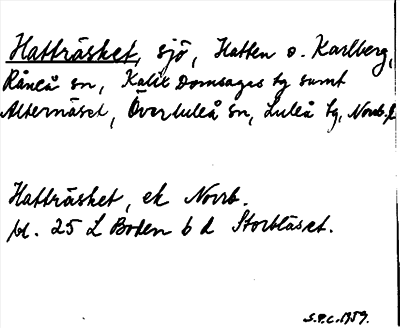 Hatträsket, sjö, Hatten o. Karlberg,
Råneå sn, Kalix Domsagas tg samt
Alternäset, Överluleå sn, Luleå tg, Norrb. l.
Hatträsket, ek Norrb.
bl. 25 L Boden b d Storbläset.
S.P.C. 1959.